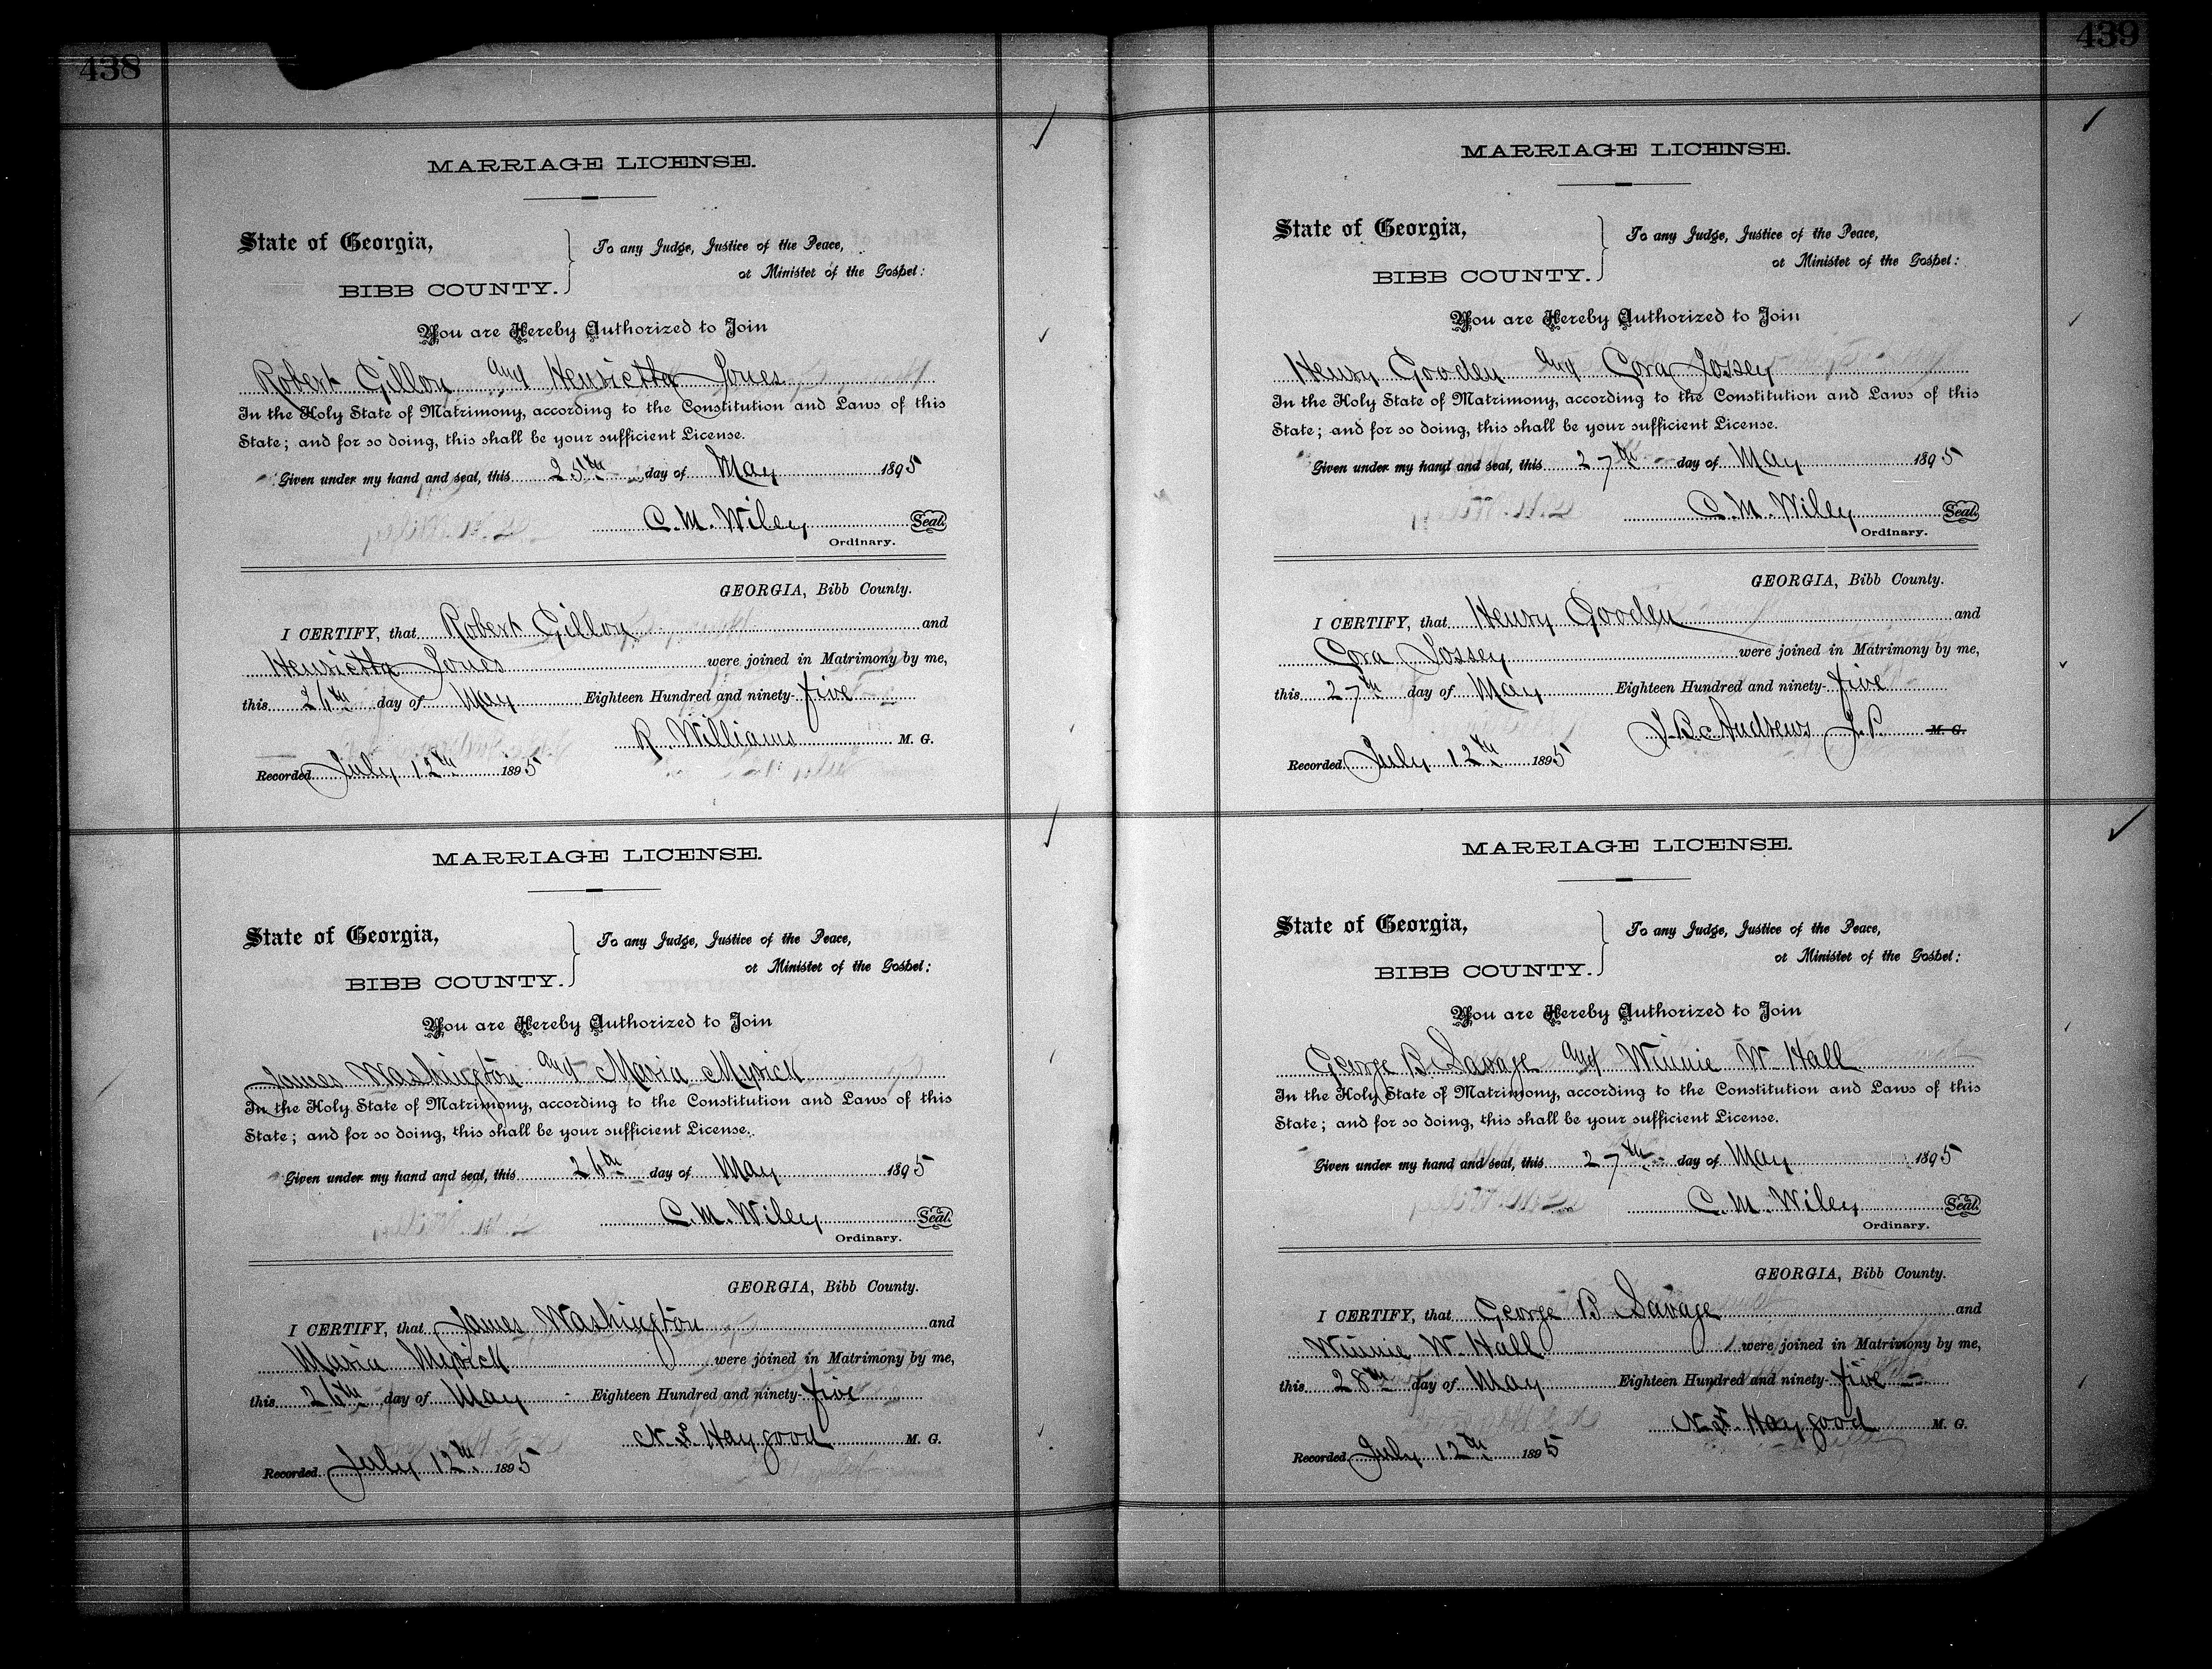 438
MARRIAGE LICENSE.
State of Georgia,
BIBB COUNTY.
To any Judge, Justice of the Peace,
or Minister of the Gospel:
You are Hereby Authorized to Join
Robert Gillon and Henrietta Jones
In the Holy State of Matrimony, according to the Constitution and Laws of this
State; and for so doing, this shall be your sufficient License.
Given under my hand and seal, this 25th day of May 1895
C. M. Wiley Seal.
Ordinary.
GEORGIA, Bibb County.
I CERTIFY, that Robert Gillon and
Henrietta Jones were joined in Matrimony by me,
this 26th day of May Eighteen Hundred and ninety-five
R. Williams M. G.
Recorded July 12th 1895
MARRIAGE LICENSE.
State of Georgia,
BIBB COUNTY.
To any Judge, Justice of the Peace,
or Minister of the Gospel:
You are Hereby Authorized to Join
James Washington and Maria Myrick
In the Holy State of Matrimony, according to the Constitution and Laws of this
State; and for so doing, this shall be your sufficient License.
Given under my hand and seal, this 26th day of May 1895
C. M. Wiley Seal.
Ordinary.
GEORGIA, Bibb County.
I CERTIFY, that James Washington and
Maria Myrick were joined in Matrimony by me,
this 26th day of May Eighteen Hundred and ninety-five
Haygood M. G.
Recorded July 12th 1895
439
MARRIAGE LICENSE.
State of Georgia,
BIBB COUNTY.
To any Judge, Justice of the Peace,
or Minister of the Gospel:
You are Hereby Authorized to Join
Henry Gooden and Cora Jossey
In the Holy State of Matrimony, according to the Constitution and Laws of this
State; and for so doing, this shall be your sufficient License.
Given under my hand and seal, this 27th day of May 1895
C. M. Wiley Seal.
Ordinary.
GEORGIA, Bibb County.
I CERTIFY, that Henry Gooden and
Cora Jossey were joined in Matrimony by me,
this 27th day of May Eighteen Hundred and ninety-five
Andrews J. P. M. G.
Recorded July 12th 1895
MARRIAGE LICENSE.
State of Georgia,
BIBB COUNTY.
To any Judge, Justice of the Peace,
or Minister of the Gospel:
You are Hereby Authorized to Join
George B. Savage and Winnie W. Hall
In the Holy State of Matrimony, according to the Constitution and Laws of this
State; and for so doing, this shall be your sufficient License.
Given under my hand and seal, this 27th day of May 1895
C. M. Wiley Seal.
Ordinary.
GEORGIA, Bibb County.
I CERTIFY, that George B Savage and
Winnie W. Hall were joined in Matrimony by me,
this 28th day of May Eighteen Hundred and ninety-five
Haygood M. G.
Recorded July 12th 1895